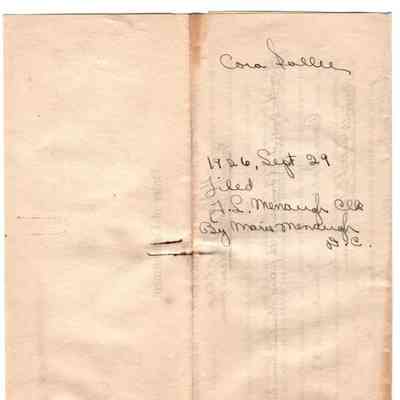 Cora Sallee
1926, Sept 29
Filed
J. L. Menaugh Clk
By Mary Menaugh
D. C.